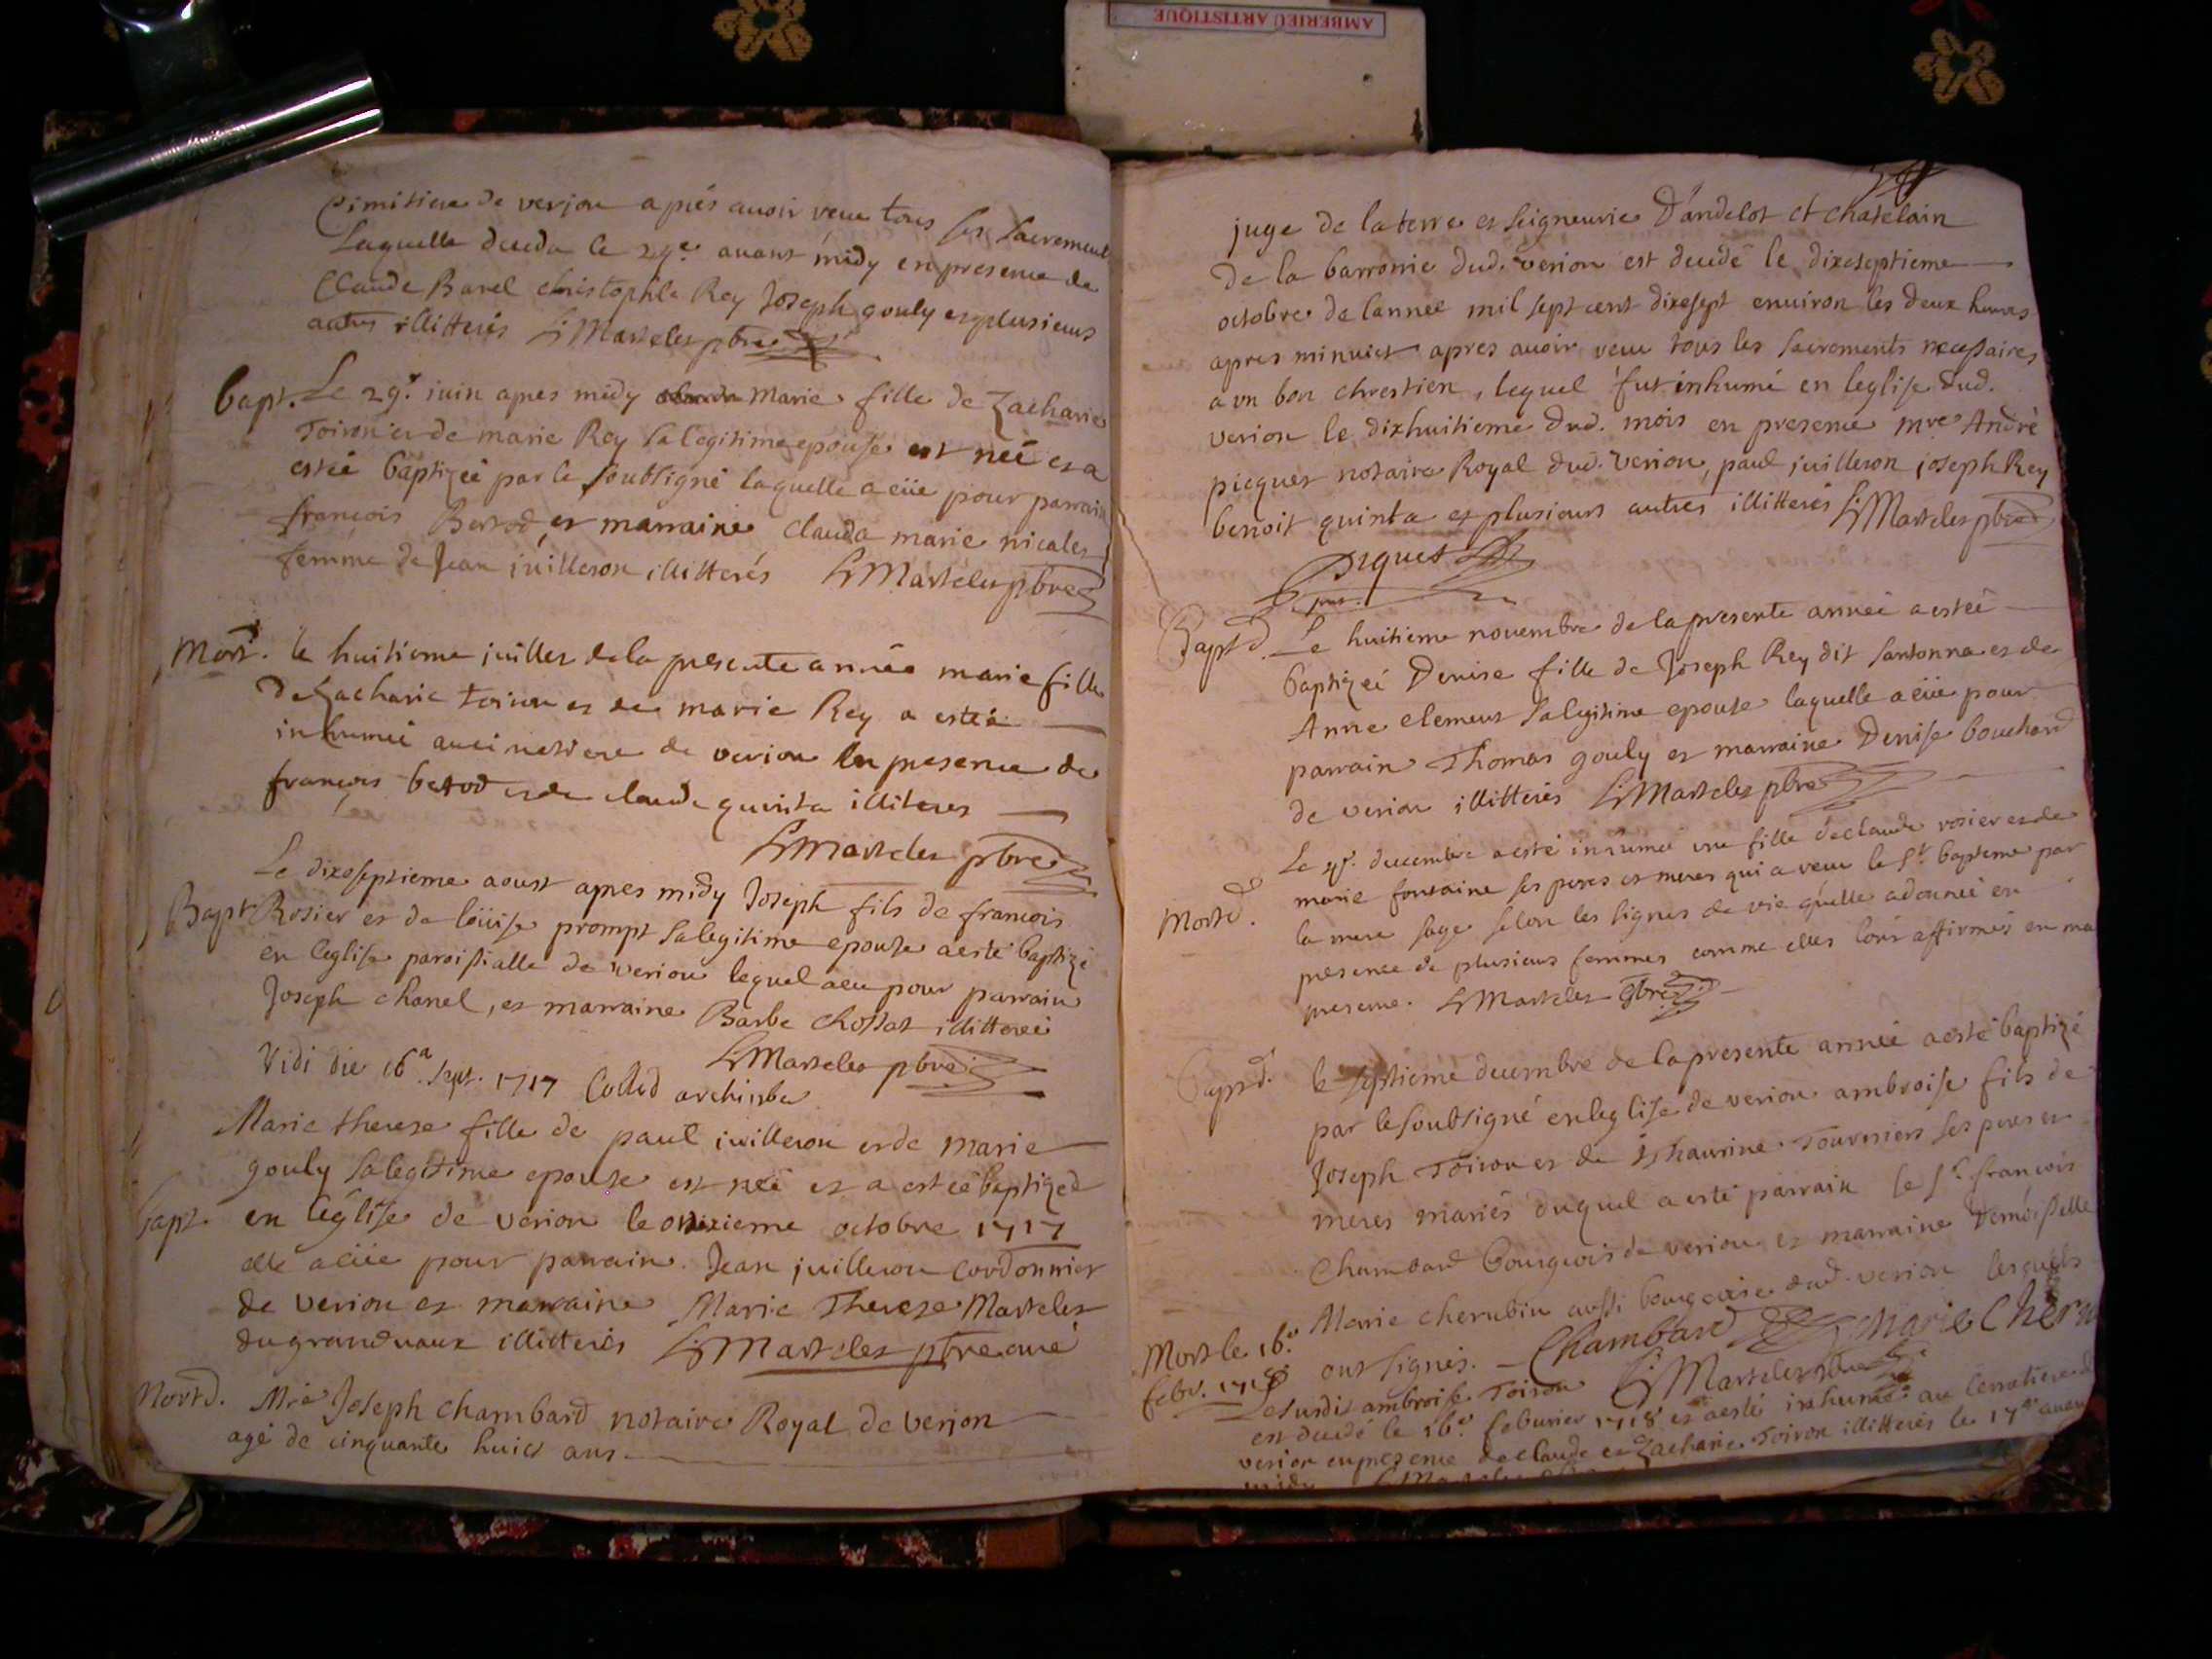 AMBERIEU ARTISTIQUE
Cimitiere de verjon apres avoir receu tous ses sacrements
Laquelle deceda le 29e. avant midy en presence de
Claude Barel christophle Rey Joseph gouly et plusieurs
autres illitteres Martelet pbre
bapt. Le 29e. juin apres midy Marie fille de Zacharie
Toiron et de marie Rey sa legitime epouse est neé et a
esteé baptizeé par le soubsigné laquelle a eüe pour parrain
françois Bertod, et marraine Clauda marie nicales
femme de Jean juilleron illitterés Martelet pbre
Mort. le huitieme juillet de la presente année marie fille
de Zacharie toiron et de marie Rey a esteé
inhumeé au cimetiere de verion en presence de
françois betrod et de claude quinta illiteres
Martelet pbre
Le dixseptieme aoust apres midy Joseph fils de francois
Bapt Rosier et de loüise prompt sa legitime epouse a esté baptizé
en leglise paroissialle de verion lequel a eu pour parrain
Joseph chanel, et marraine Barbe Chossat illitteréé
Martelet pbre
Vidi die 16a. sept. 1717 Collod archipbr
Marie therese fille de paul juilleron et de marie
gouly sa legitime epouse est neé et a esteé baptized
bapt. en léglise de verion le onzieme octobre 1717
elle a eüe pour parrain Jean juilleron Cordonnier
de verion et marraine Marie Therese Martelet
du grandvaux illitterés Martelet pbre curé
Mortd. Mre Joseph Chambard notaire Royal de verjon
agé de cinquante huict ans
juge de la terre et seigneurie D'andelot et chatelain
de la barronie dud. verion est decedé le dixseptieme
octobre de lannee mil sept cent dixsept environ les deux heures
apres minuict apres avoir receu tous les sacrements necessaires
a un bon chrestien, lequel fut inhumé en leglise dud.
verion le dixhuitieme dud. mois en presence mre André
picquet notaire Royal dud. Verion, paul juilleron joseph Rey
benoit quinta et plusieurs autres illitterés Martelet pbre
Piquet
pnt.
Baptd. Le huitieme novembre de la presente anneé a esteé
baptizeé Denise fille de Joseph Rey dit santonna et de
Anne clement sa legitime epouse laquelle a eüe pour
parrain Thomas gouly et marraine Denise bouchard
de verion illitterés Martelet pbre
Le 4e. decembre a esté inhumeé une fille de claude rosier et de
Mortd. marie fontaine ses peres et meres qui a receu le St. baptesme par
la mere sage selon les signes de vie qu'elle a donneé en
presence de plusieurs femmes comme elles lont affirmés en ma
presence. Martelet pbre
Baptd. le septieme decembre de la presente anneé a esté baptizé
par le soubsigné en leglise de verion ambroise fils de
Joseph Toiron et de Tourniers ses peres et
meres mariés duquel a esté parrain le Sr. francois
Chambard bourgeois de verion et marraine Demoiselle
Marie cherubin aussi bourgeoise dud. verion lesquels
Mort le 16e. ont signés. Chambard Marie Cheru
febr. 1718 Le susdit ambroise Toiron Martelet pbre
est decedé le 16e. feburier 1718 et a esté inhumé au cimetiere de
verion en presence de claude et Zacharie Toiron illitterés le 17e avant
midy Martelet pbre